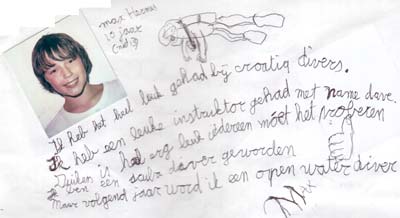 max Harmes
10 jaar
Ik heb het heel leuk gehad bij croatia divers.
Ik heb een leuke instruktor gehad met name dave.
Duiken is heel erg leuk iedereen moet het proberen
Ik ben een scuba diver geworden
Maar volgend jaar word ik een open water diver
Max